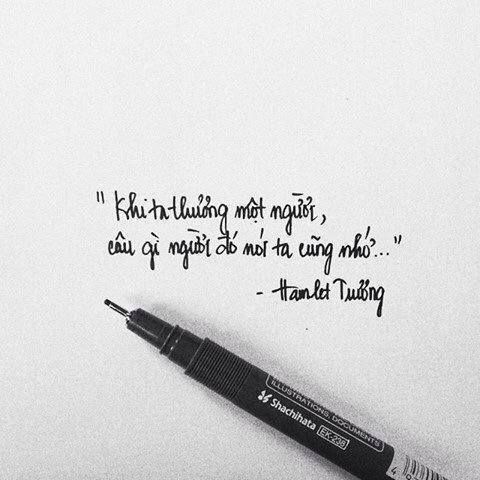 "Khi ta thương một người,
câu gì người đó nói ta cũng nhớ..."
- Hamlet Trương
ILLUSTRATIONS, DOCUMENTS
Shachihata EK-238